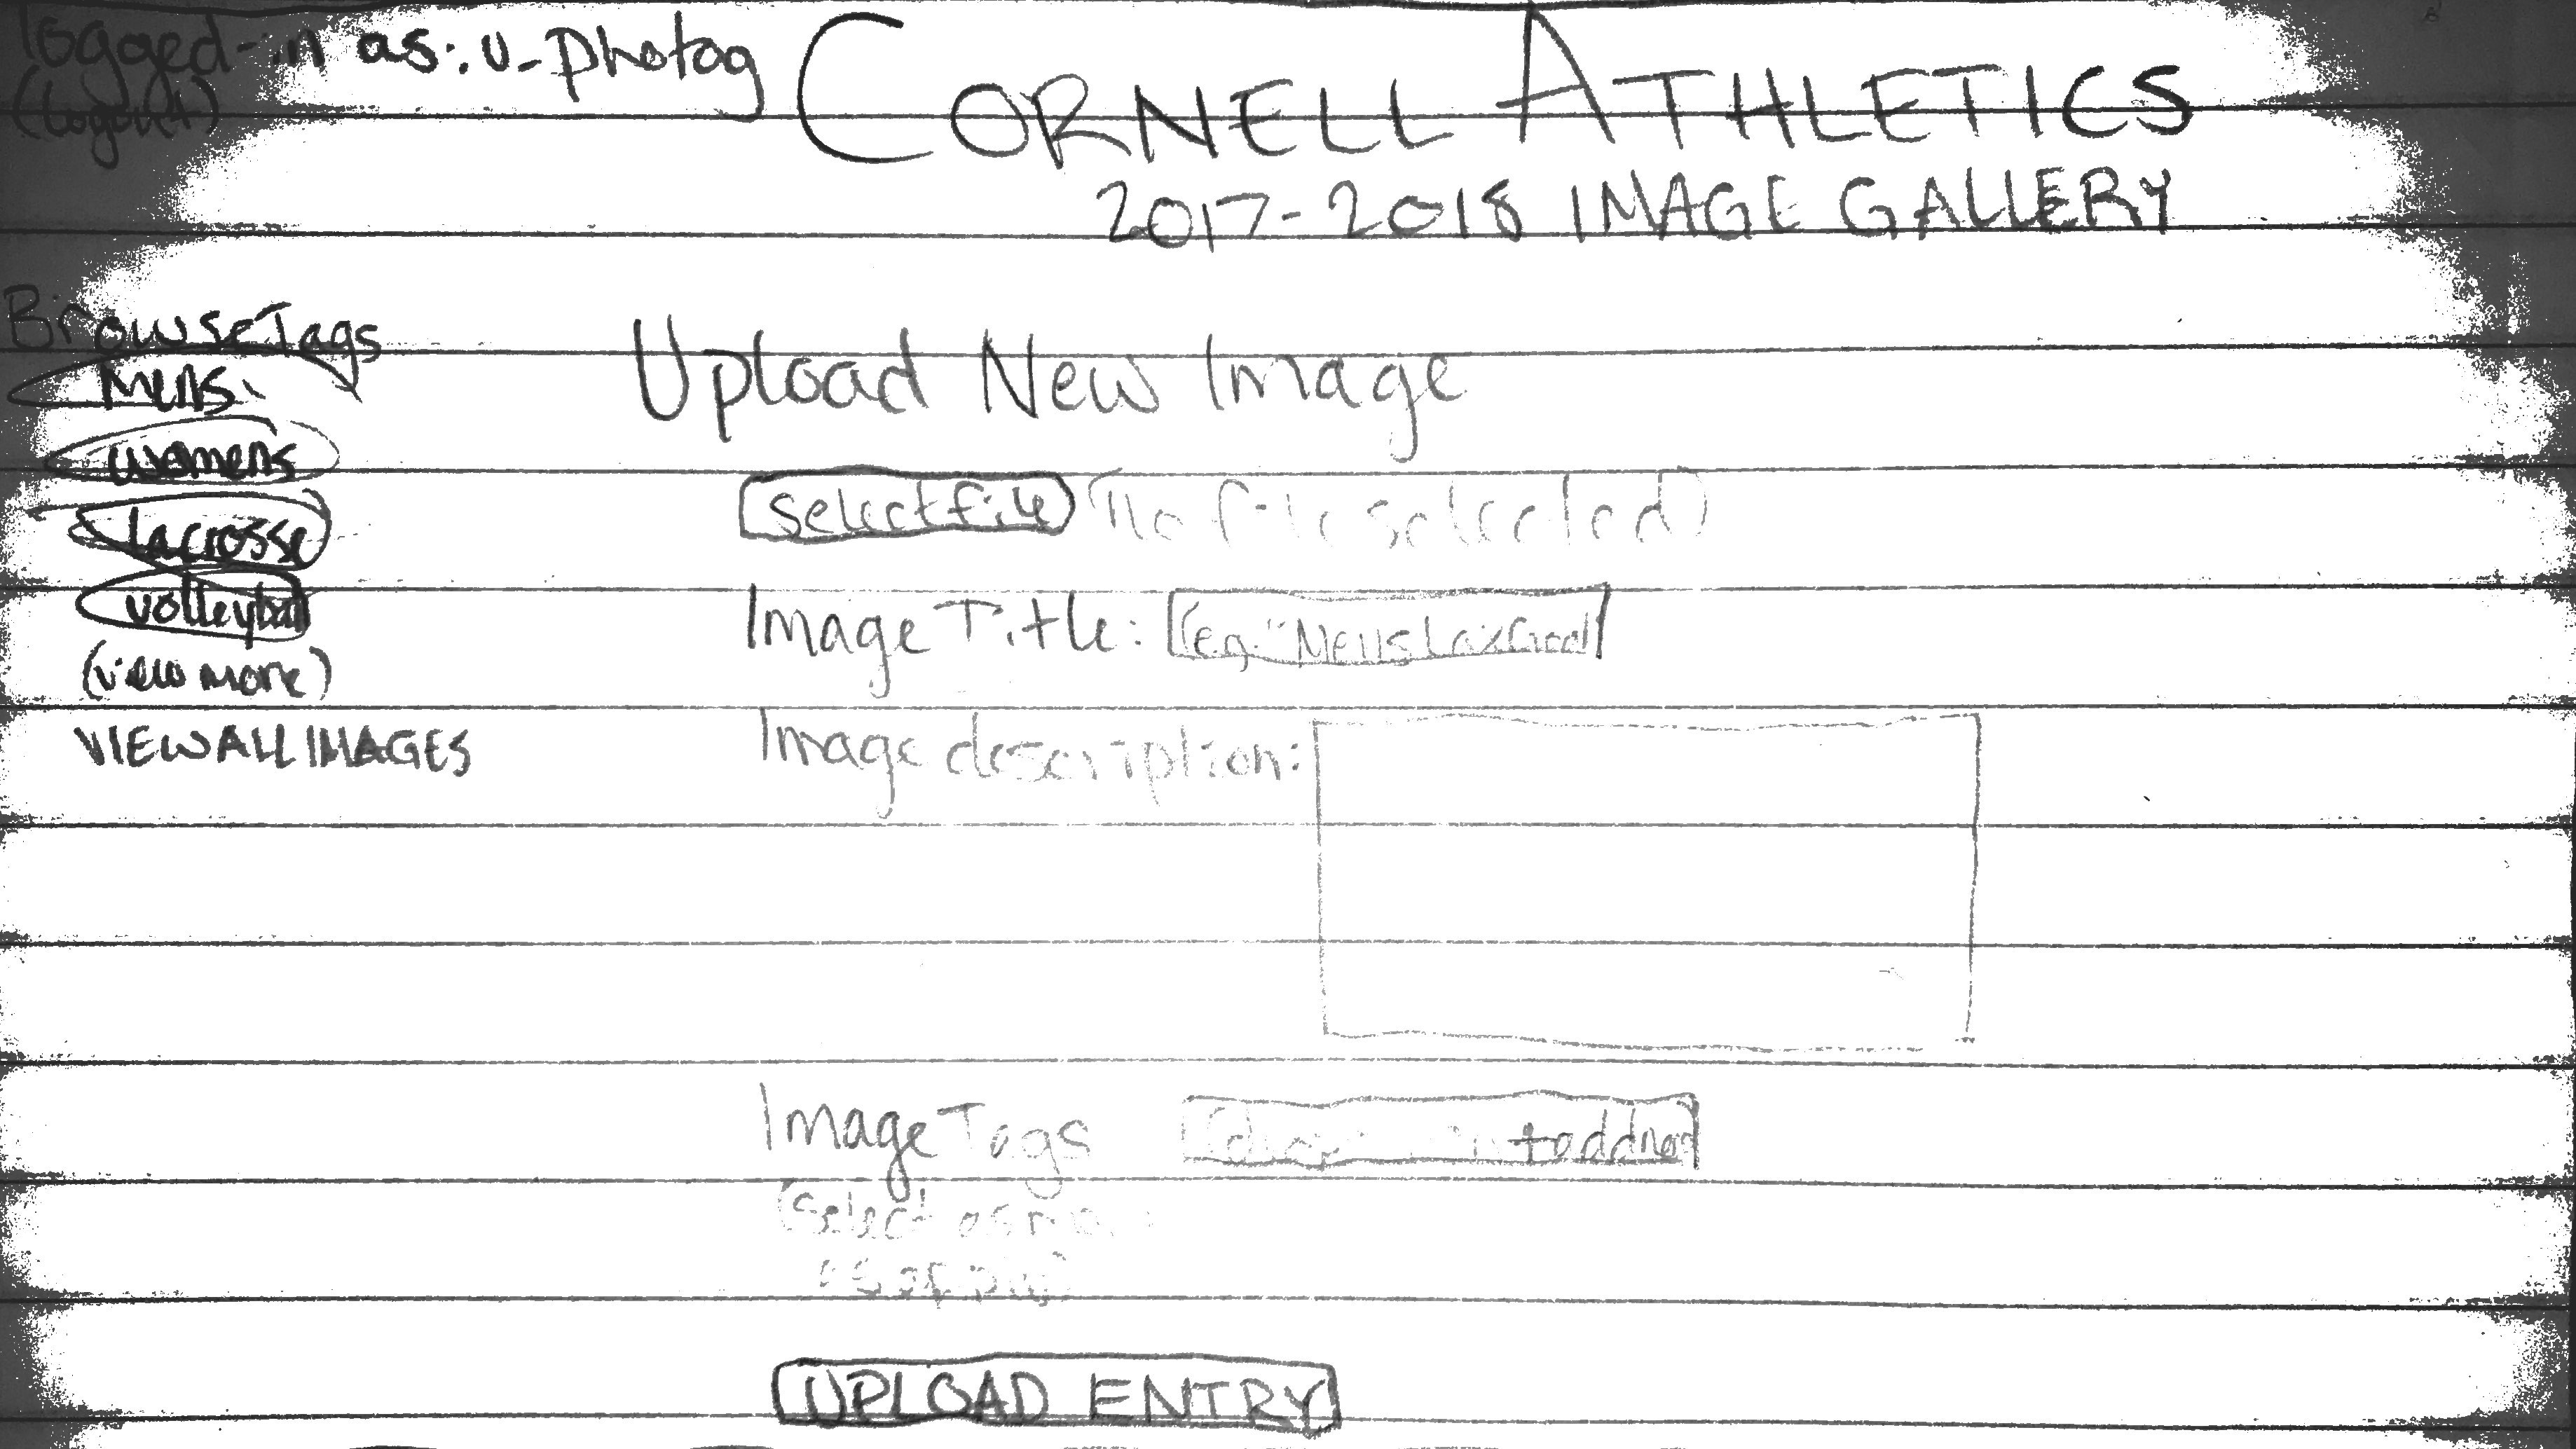 logged-in as: u_photog
(logout)
CORNELL ATHLETICS
2017-2018 IMAGE GALLERY
Browse Tags
mens
womens
lacrosse
volleyball
(view more)
VIEW ALL IMAGES
Upload New Image
select file (no file selected)
Image Title: (eg. "Mens Lax Goal
Image description:
Image Tags
to add new
(Select as
as apply)
UPLOAD ENTRY